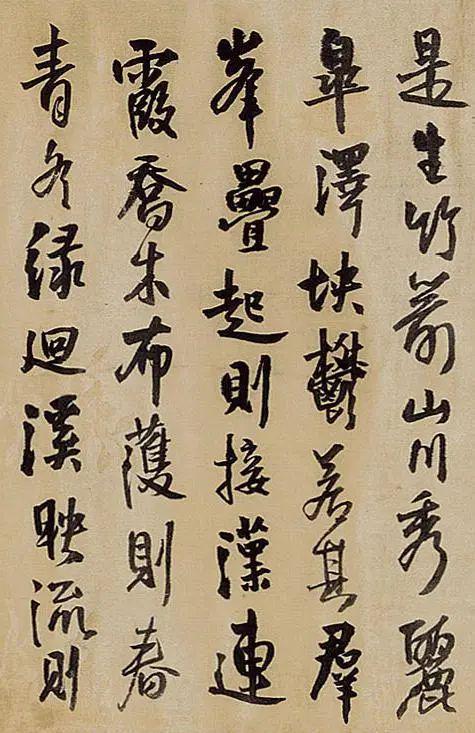 是生竹箭山川秀麗
皐澤坱鬱若其羣
峯疊起則接漢連
霞喬木布護則春
青冬緑迴溪映流則